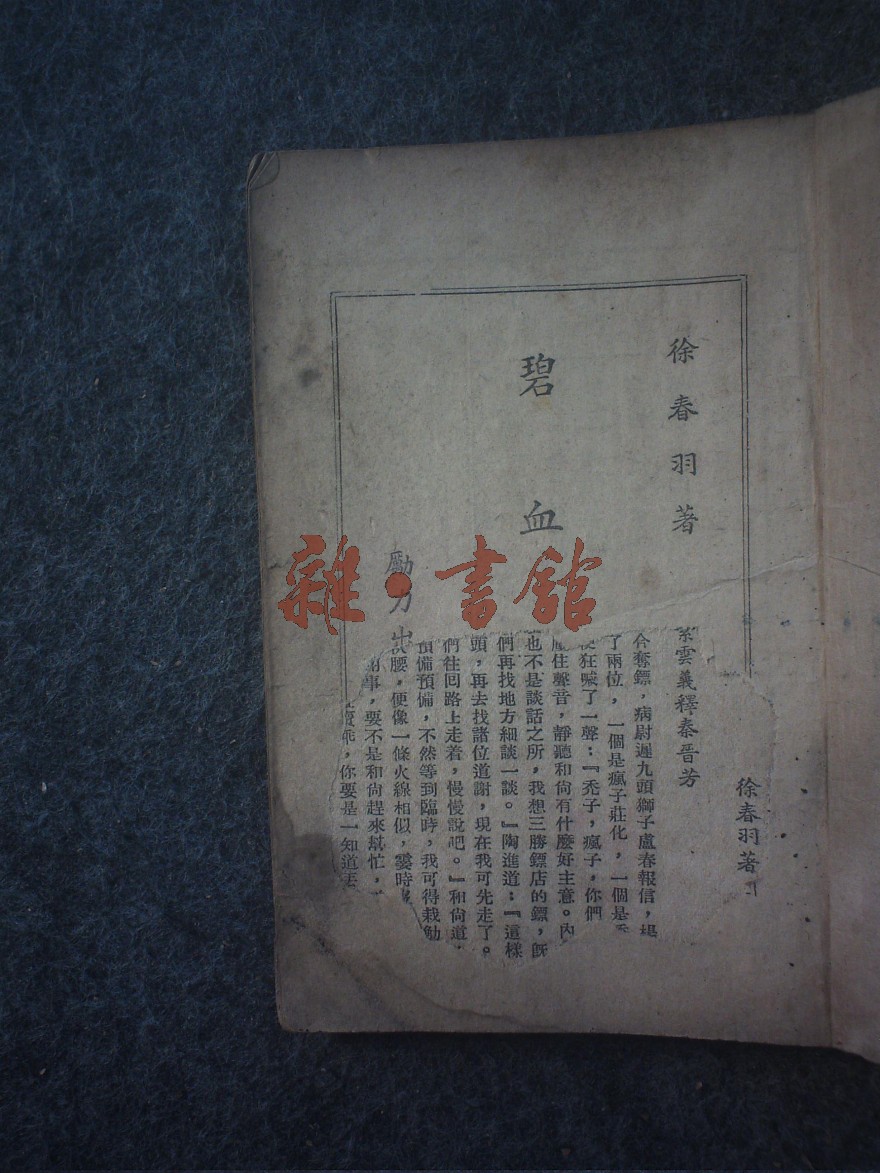 徐春羽著
碧血
勵力出
雜·書館
徐春羽著
雲義釋秦晉芳
奪鏢，病尉遲九頭獅子盧春報信，
了兩位，一個是瘋子莊化，一個是
狂喊了一聲：『禿子，瘋子，你們
住聲音，靜聽和尙有什麼好主意。內
也不是談話之所，我想三勝鏢店的鏢，旣
們再找地方細談一談。』陶進道：『這樣
頭，再去找諸位道謝，現在我可先走了。
們往回路上走着，慢慢說吧。』和尙道
預備預備，不然等到臨時，我可得栽觔
腰，便像一條火線相似，霎時
事，要不是和尙趕來幫忙，
賣乖，你要是一知道